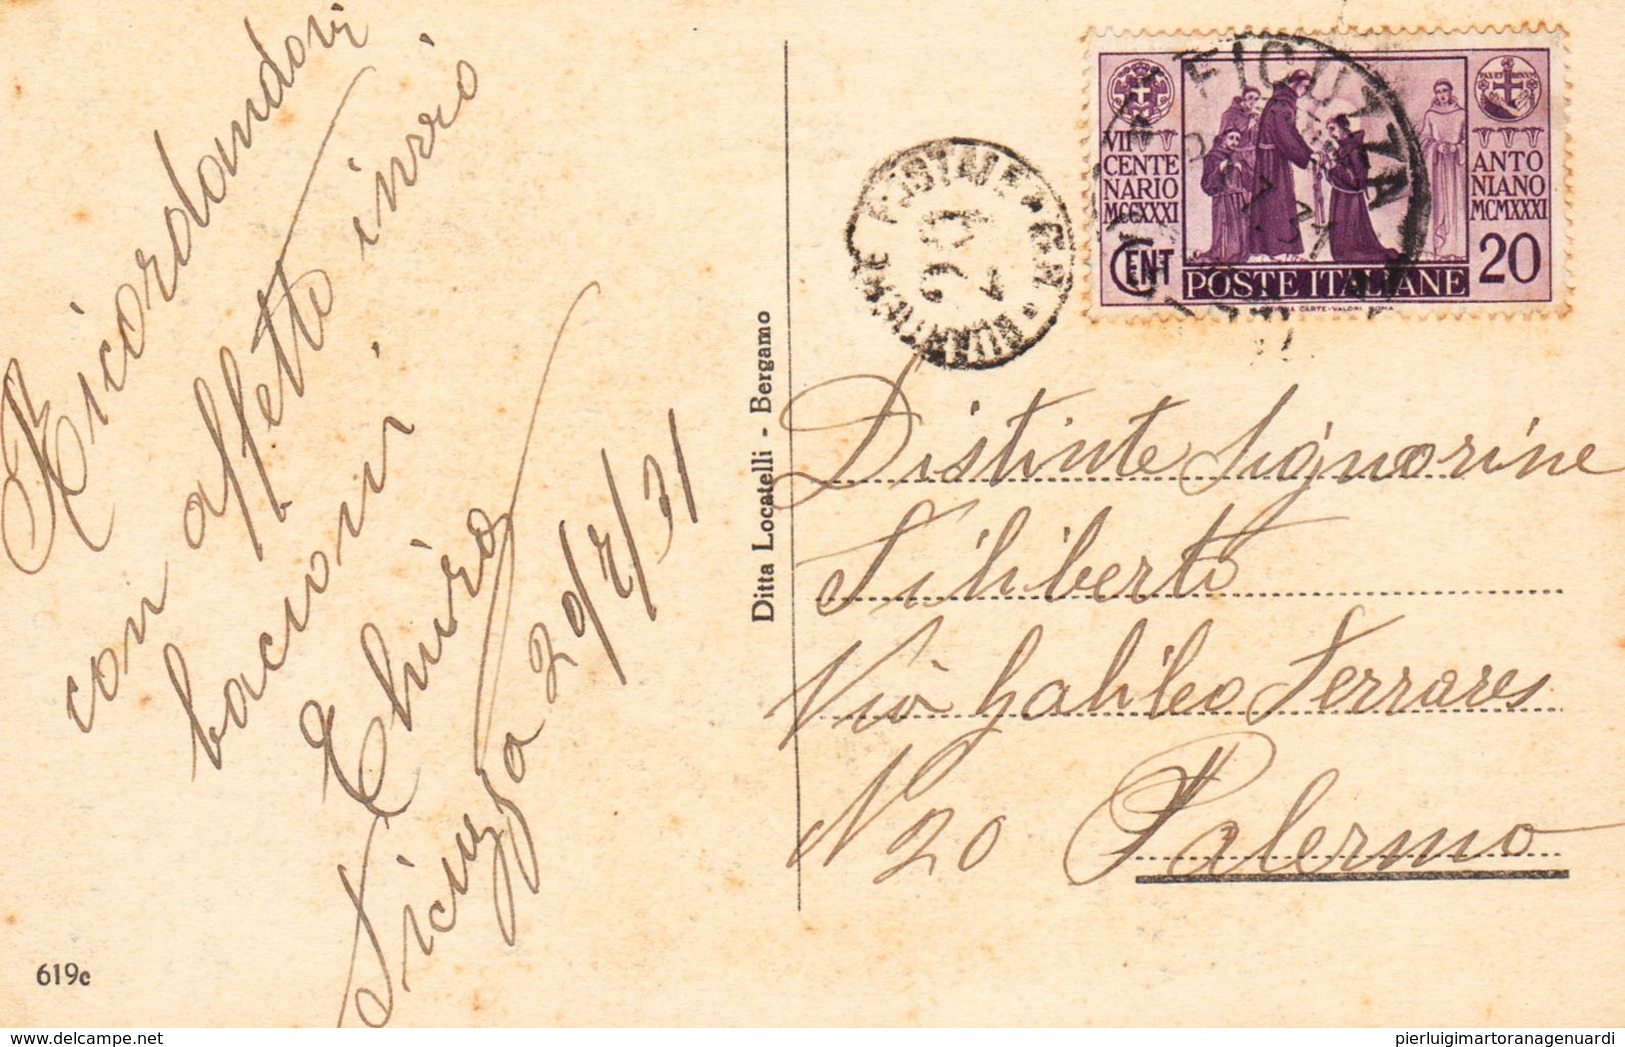 Ricordandovi
con affetto invio
bacioni
Ficuzza 29/7/31
619c
Ditta Locatelli - Bergamo
FICUZZA
VII CENTENARIO MCCXXXI
ANTONIANO MCMXXXI
CENT 20
POSTE ITALIANE
Distinte Signorine
Filiberto
Via Galileo Ferrares
N 20 Palermo
pierluigimartoranagenuardi